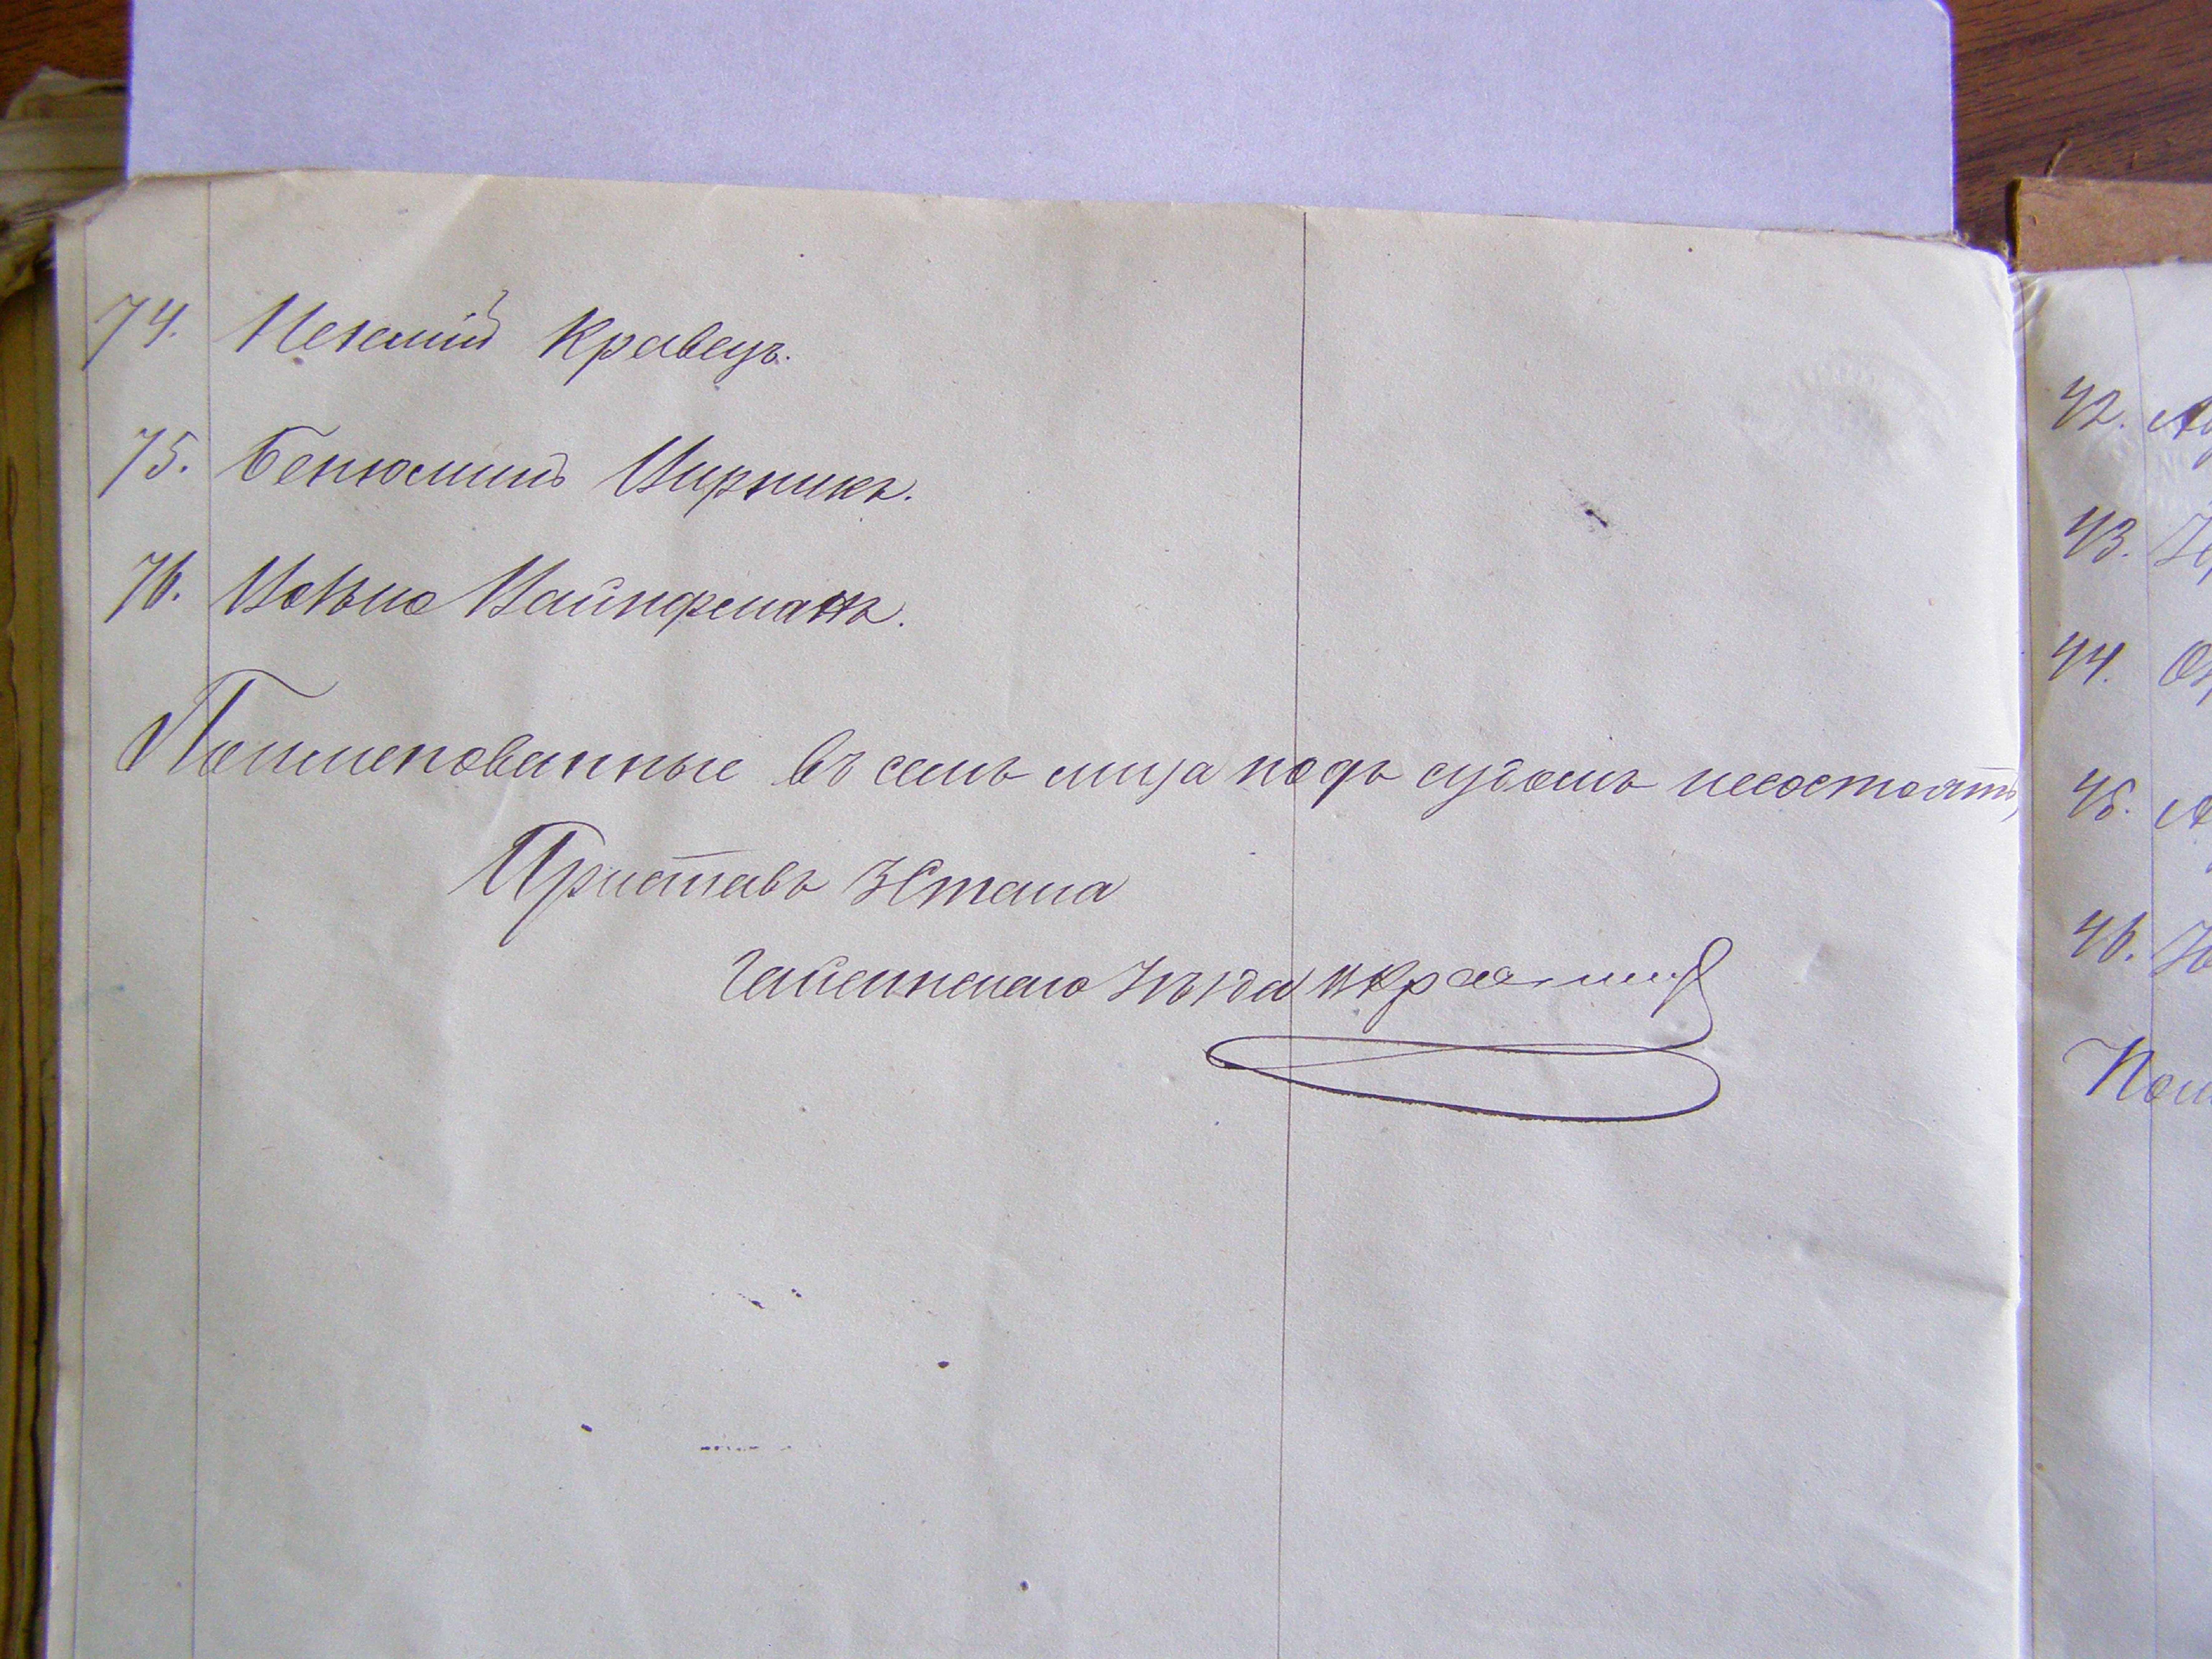 74. Нехемій Кравецъ.
75. Бенюминъ Цирникъ.
76. Вайнфманъ.
Поименованные въ семъ лица подъ судомъ несостоятъ,
Приставъ 3 Стана
Гайсинскаго Уѣзда
42.
43.
44.
45.
46.